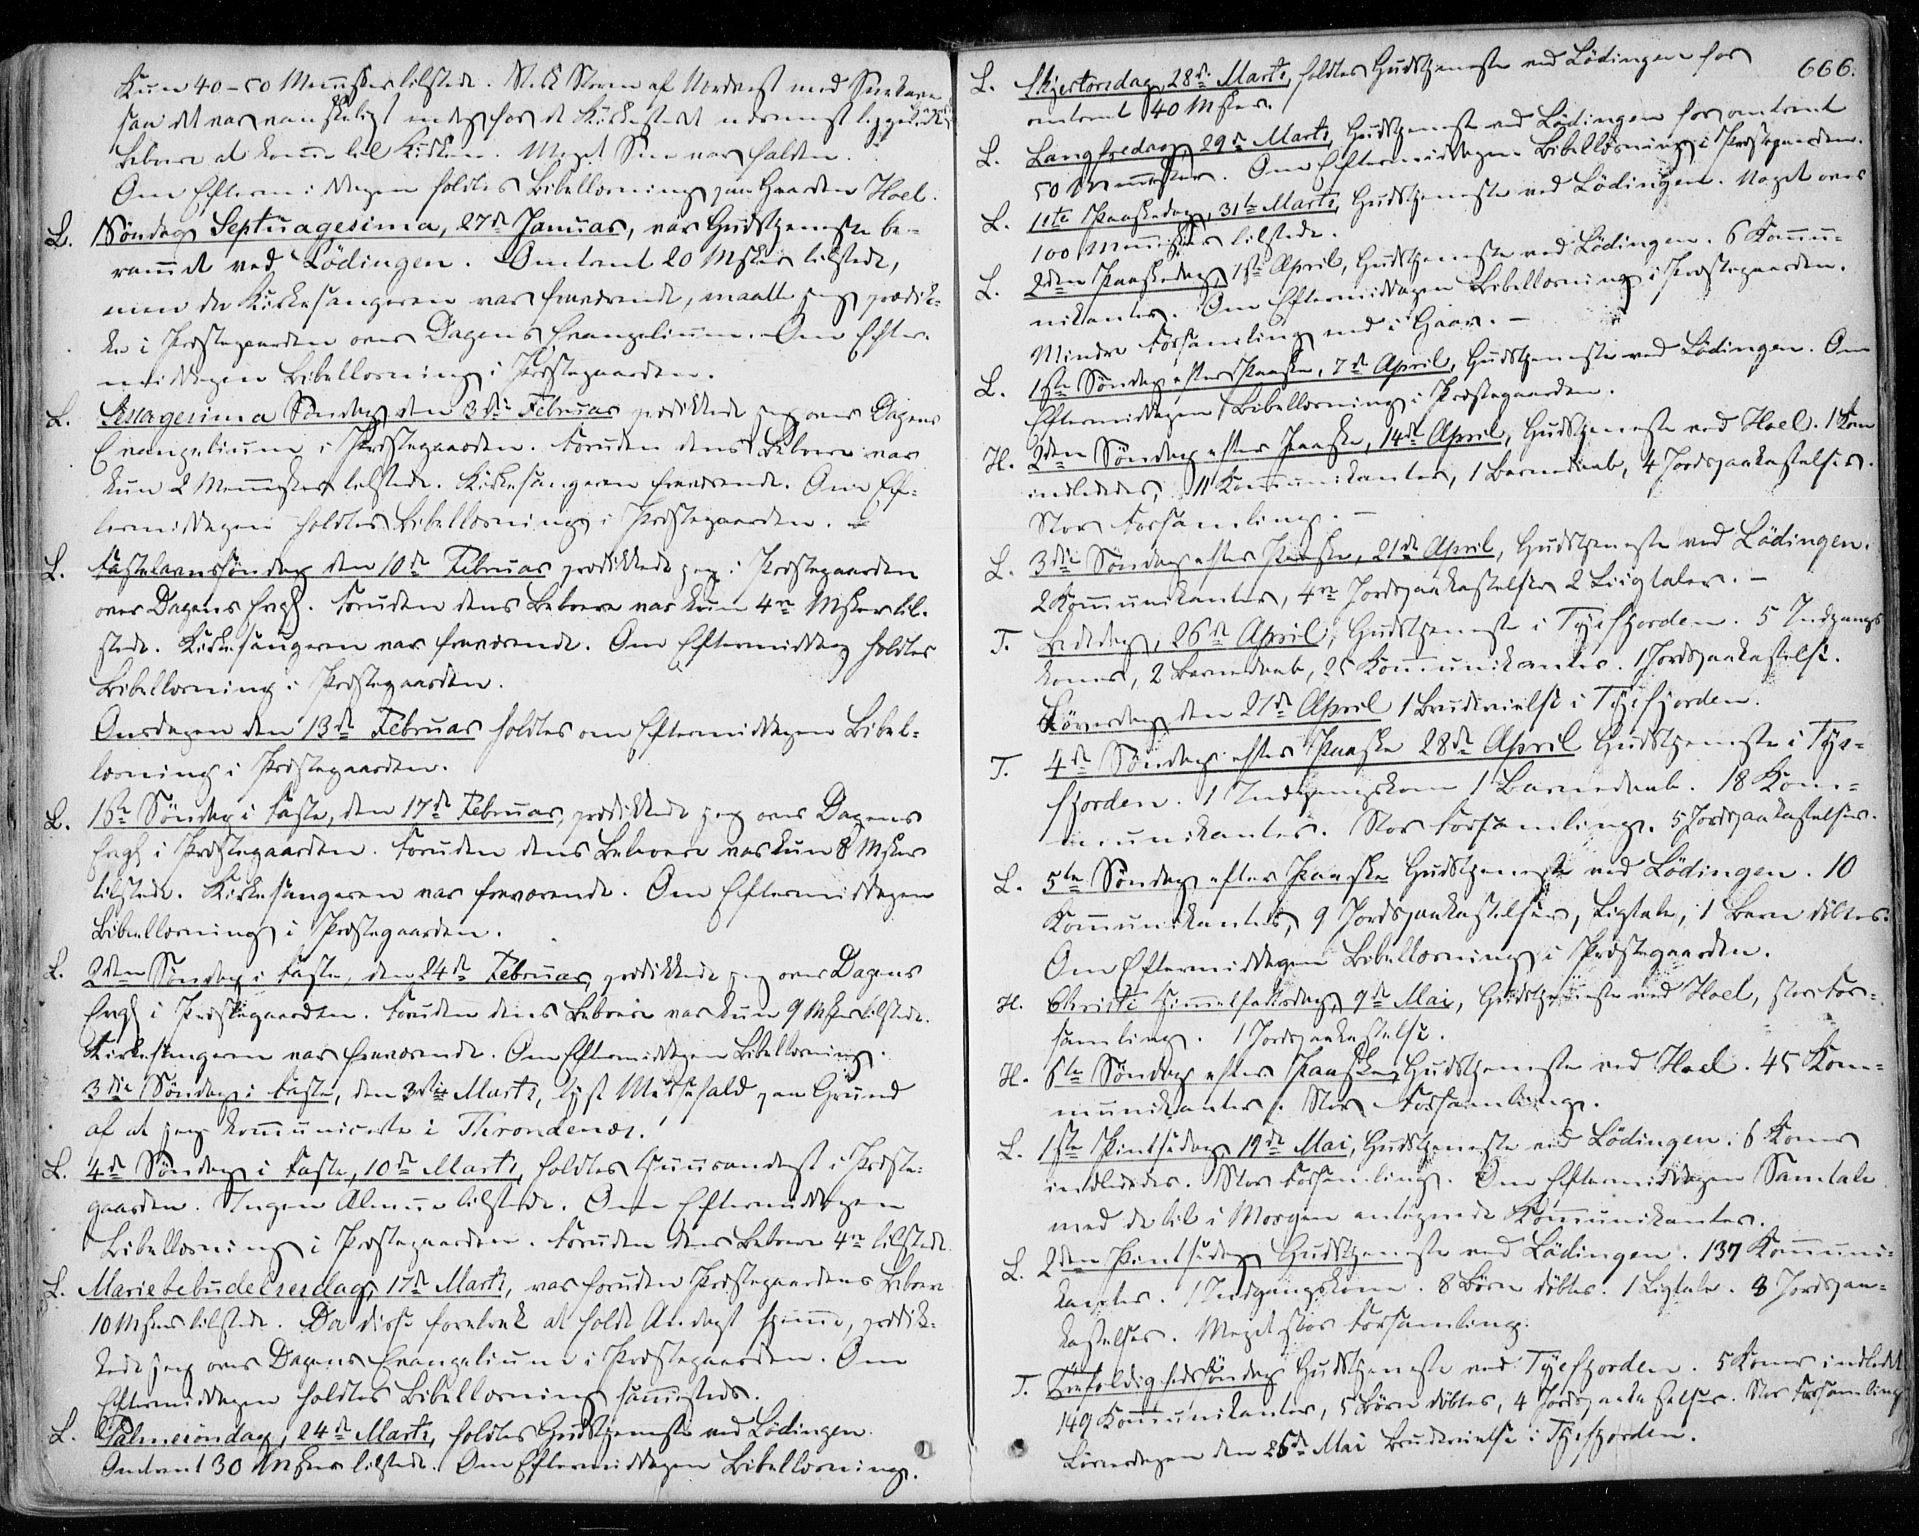 Kun 40-50 Mennesker tilstede. Stærk Storm af Nordvest med Sneekave
saa det var vanskeligt endog for de Kirkestedet nærmest liggende Gaardes
Beboere at komme til Kirken. Meget Snee var falden.
Om Eftermiddagen holdtes Bibellæsning paa Gaarden Hoel.
L. Søndag Septuagesima, 27de Januar, var Gudstjeneste be-
rammet ved Lödingen. Omtrent 20 Msker tilstede,
men da Kirkesangeren var fraværende, maatte jeg prædik-
ke i Præstegaarden over Dagens Evangelium. Om Efter-
middagen Bibellæsning i Præstegaarden.
L. Sexagesima Søndag den 3die Februar prædikede jeg over Dagens
Evangelium i Præstegaarden. Foruden dens Beboere var
kun 2 Mennesker tilstede. Kirkesangeren fraværende. Om Ef-
termiddagen holdtes Bibellæsning i Præstegaarden. -
L. Fastelavnssöndag den 10de Februar prædikede jeg i Præstegaarden
over Dagens Evgl. Foruden dens Beboere var kun 4re Msker til-
stede. Kirkesangeren var fraværende. Om Eftermiddag holdtes
Bibellæsning i Præstegaarden.
Onsdagen den 13de Februar holdtes om Eftermiddagen Bibel-
læsning i Præstegaarden.
L. 1ste Söndag i Faste, den 17de Februar, prædikede jeg over Dagens
Evgl i Præstegaarden. Foruden dens Beboere var kun 8 Msker
tilstede. Kirkesangeren var fraværende. Om Eftermiddagen
Bibellæsning i Præstegaarden.
L. 2den Söndag i Faste, den 24de Februar, prædikede jeg over Dagens
Evgl i Præstegaarden. Foruden dens Beboere var kun 9 Msker tilstede.
Kirkesangeren var fraværende. Om Eftermiddagen Bibellæsning.
3die Söndag i Faste, den 3die Marts, lyst Messefald paa Grund
af at jeg kommunicerte i Throndenæs.
L. 4de Söndag i Faste, 10de Marts, holdtes Huusandagt i Præste-
gaarden. Ingen Almue tilstede. Om Eftermiddagen
Bibellæsning i Præstegaarden. Foruden dens Beboere 4re tilstede.
L. Mariebebudelsesdag, 17de Marts, var foruden Præstegaardens Beboere
10 Msker tilstede. Da disse foretrak at holde Andagt hjemme, prædik-
kede jeg over Dagens Evangelium i Præstegaarden. Om
Eftermiddagen holdtes Bibellæsning sammesteds.
L. Palmesöndag, 24de Marts, holdtes Gudstjeneste ved Lödingen.
Omtrent 30 Msker tilstede. Om Eftermiddagen Bibellæsning.
666.
L. Skjertorsdag, 28de Marts, holdtes Gudstjeneste ved Lödingen for
omtrent 40 Msker.
L. Langfredag, 29de Marts, Gudstjeneste ved Lödingen for omtrent
50 Mennesker. Om Eftermiddagen Bibellæsning i Præstegaarden.
L. 1ste Paaskedag, 31te Marts, Gudstjeneste ved Lödingen. Noget over
100 Mennesker tilstede.
L. 2den Paaskedag, 1ste April, Gudstjeneste ved Lödingen. 6 Kommu-
nikanter. Om Eftermiddagen Bibellæsning i Præstegaarden.
Mindre Forsamling end i Gaar. -
L. 1ste Söndag efter Paaske, 7de April, Gudstjeneste ved Lödingen. Om
Eftermiddagen Bibellæsning i Præstegaarden.
H. 2den Söndag efter Paaske, 14de April, Gudstjeneste ved Hoel. 1 Kone
indlededes, 11 Kommunikanter, 1 Barnedaab, 4 Jordspaakastelser.
Stor Forsamling. -
L. 3die Söndag efter Paaske, 21de April, Gudstjeneste ved Lödingen.
2 Kommunikanter, 4re Jordspaakastelser 2 Liigtaler. -
T. Bededag, 26de April, Gudstjeneste i Tysfjorden. 5 Indgangs
koner, 2 Barnedaab, 25 Kommunikanter. 1 Jordspaakastelse.
Löverdag den 27de April 1 Brudevielse i Tysfjorden.
T. 4de Söndag efter Paaske 28de April Gudstjeneste i Tys-
fjorden. 1 Indgangskone 1 Barnedaab. 18 Kom-
munikanter. Stor Forsamling. 5 Jordspaakastelser.
L. 5te Söndag efter Paaske Gudstjeneste ved Lödingen. 10
Kommunikanter, 9 Jordspaakastelser, Ligtale, 1 Barn döbtes.
Om Eftermiddagen Bibellæsning i Præstegaarden.
H. Christi Himmelfartsdag, 9de Mai, Gudstjeneste ved Hoel, stor For-
samling. 1 Jordspaakastelse.
H. 6te Söndag efter Paaske, Gudstjeneste ved Hoel. 45 Kom-
munikanter. Stor Forsamling.
L. 1ste Pintsedag 19de Mai, Gudstjeneste ved Lödingen. 6 Koner
indlededes. Stor Forsamling. Om Eftermiddagen Samtale
med de til i Morgen antegnede Kommunikanter.
L. 2den Pintsedag Gudstjeneste ved Lödingen. 137 Kommuni-
kanter. 1 Indgangskone. 8 Börn döbtes. 1 Ligtale. 8 Jordspaa-
kastelser. Meget stor Forsamling.
T. Trefoldighedssöndag Gudstjeneste ved Tysfjorden. 5 Koner indledet
149 Kommunikanter, 5 Börn döbtes, 4 Jordspaakastelser. Stor Forsamling
Löverdagen den 25de Mai Brudevielse i Tysfjorden.